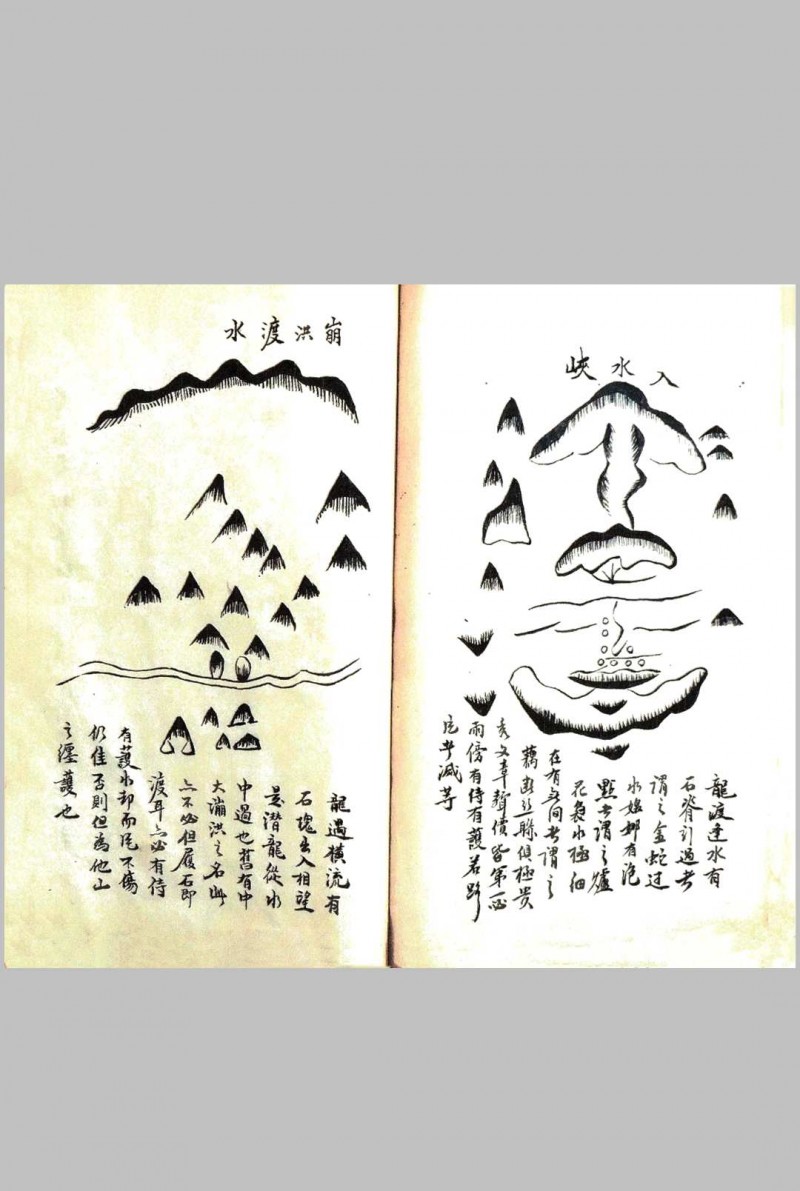 入水峽
龍渡逢水有
石脊引過者
謂之金蛇過
水娘娜有泡
點者謂之爐
花裊水極細
在有無間者謂之
藕斷絲聯俱極貴
秀文章聲價皆第一必
兩傍有侍有護若
減等
崩洪渡水
龍過橫流有
石塊出入相望
是潛龍從水
中過也舊有中
大漰洪之名此
亦不必但履石即
渡耳亦必有侍
有護水却而不傷
仍佳否則但為他山
之纏護也